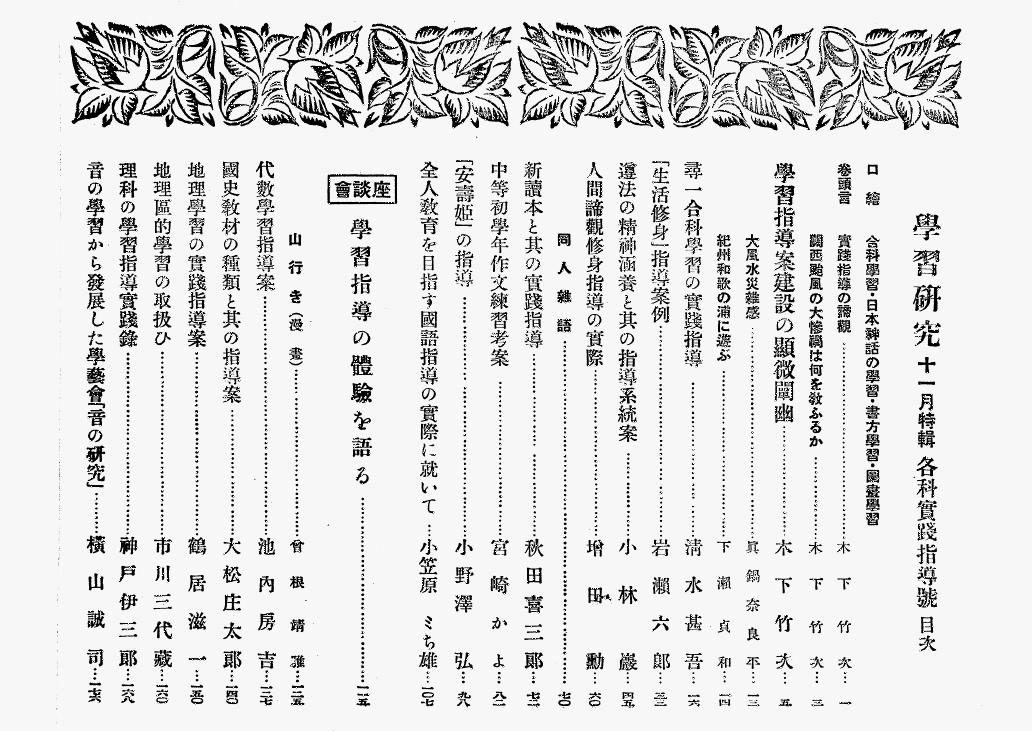 學習研究 十一月特輯 各科實踐指導號 目次
口繪 合科學習・日本神話の學習・書方學習・圖畫學習
卷頭言 實踐指導の諦觀……木下竹次…一
關西颱風の大慘禍は何を敎ふるか……木下竹次…三
學習指導案建設の顯微闡幽……木下竹次…五
大風水災雜感……眞鍋奈良平…一三
紀州和歌の浦に遊ぶ……下瀨貞和…一四
尋一合科學習の實踐指導……淸水甚吾…一六
「生活修身」指導案例……岩瀨六郎…三三
遵法の精神涵養と其の指導系統案……小林巖…四五
人間諦觀修身指導の實際……增田勳…六〇
同人雜語……七〇
新讀本と其の實踐指導……秋田喜三郎…七二
中等初學年作文練習考案……宮崎かよ…八二
「安壽姬」の指導……小野澤弘…九八
全人敎育を目指す國語指導の實際に就いて…小笠原ミち雄…一〇七
座談會
學習指導の體驗を語る……一一五
山行き(漫畫)……曾根靖雅…一三五
代數學習指導案……池內房吉…一三七
國史敎材の種類と其の指導案……大松庄太郎…一四〇
地理學習の實踐指導案……鶴居滋一…一五〇
地理區的學習の取扱ひ……市川三代藏…一六〇
理科の學習指導實踐錄……神戶伊三郎…一六八
音の學習から發展した學藝會「音の硏究」……橫山誠司…一七六